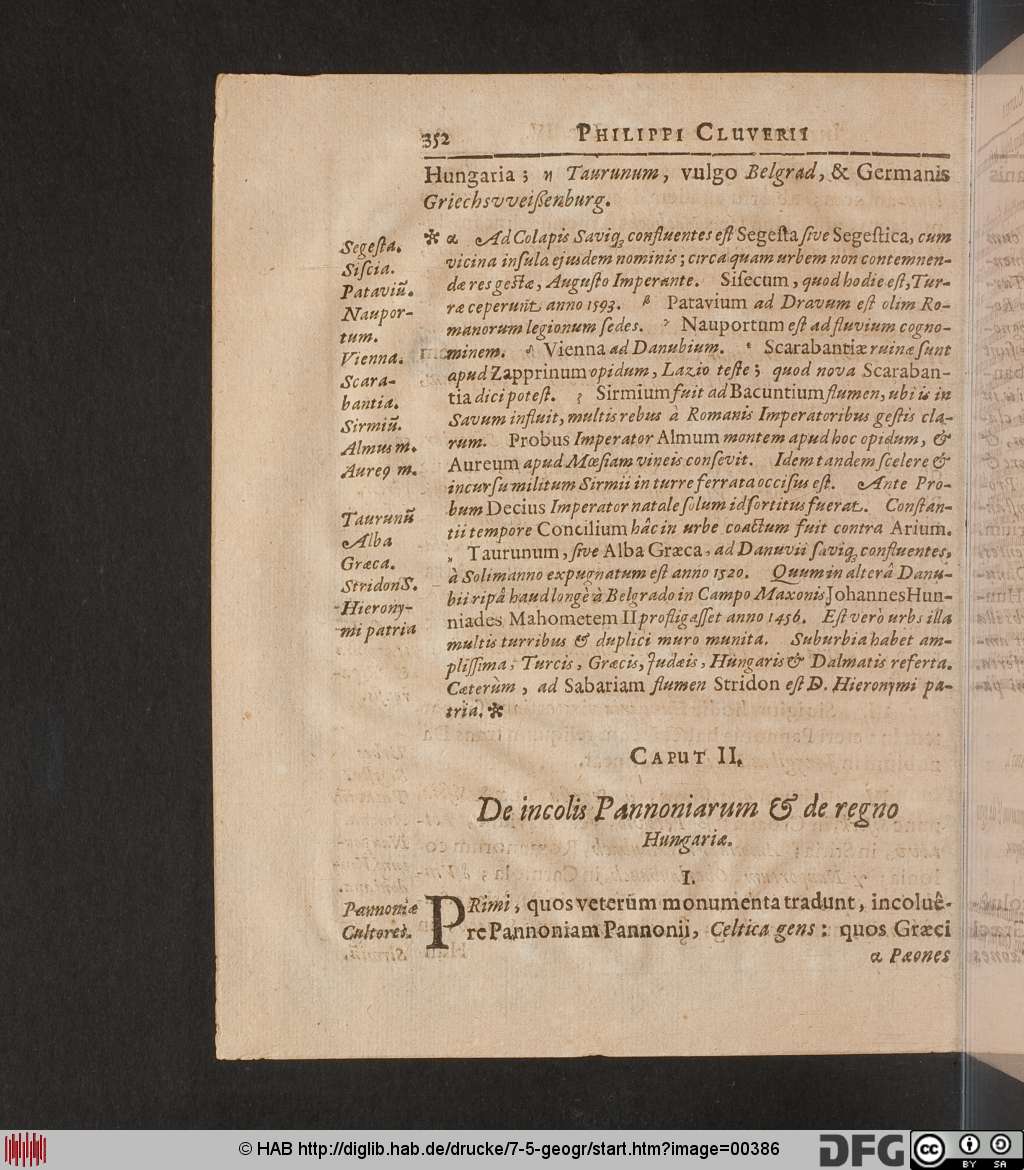 352 PHILIPPI CLUVERII
Hungaria; η Taurunum, vulgo Belgrad, & Germanis
Griechsvveißenburg.
Segesta.
Siscia.
Pataviū.
Naupor-
tum.
Vienna.
Scara-
bantia.
Sirmiū.
Almus m.
Aureꝰ m.
Taurunū
Alba
Græca.
Stridon S.
Hierony-
mi patria
* α Ad Colapis Saviq́; confluentes est Segesta sive Segestica, cum
vicina insula ejusdem nominis; circa quam urbem non contemnen-
dæ res gestæ, Augusto Imperante. Sisecum, quod hodie est, Tur-
ræ ceperunt anno 1593. β Patavium ad Dravum est olim Ro-
manorum legionum sedes. γ Nauportum est ad fluvium cogno-
minem. δ Vienna ad Danubium. ε Scarabantiæ ruinæ sunt
apud Zapprinum opidum, Lazio teste; quod nova Scaraban-
tia dici potest. ζ Sirmium fuit ad Bacuntium flumen, ubi is in
Savum influit, multis rebus à Romanis Imperatoribus gestis cla-
rum. Probus Imperator Almum montem apud hoc opidum, &
Aureum apud Mœsiam vineis consevit. Idem tandem scelere &
incursu militum Sirmii in turre ferrata occisus est. Ante Pro-
bum Decius Imperator natale solum id sortitus fuerat. Constan-
tii tempore Concilium hâc in urbe coactum fuit contra Arium.
η Taurunum, sive Alba Græca, ad Danuvii saviq́; confluentes,
à Solimanno expugnatum est anno 1520. Quum in alterâ Danu-
bii ripâ haud longè à Belgrado in Campo Maxonis Johannes Hun-
niades Mahometem II profligasset anno 1456. Est verò urbs illa
multis turribus & duplici muro munita. Suburbia habet am-
plissima, Turcis, Græcis, Judæis, Hungaris & Dalmatis referta.
Cæterùm, ad Sabariam flumen Stridon est D. Hieronymi pa-
tria. *
CAPUT II.
De incolis Pannoniarum & de regno
Hungariæ.
I.
Pannoniæ
Cultores.
PRimi, quos veterum monumenta tradunt, incoluê-
re Pannoniam Pannonii, Celtica gens: quos Græci
α Pæones
© HAB http://diglib.hab.de/drucke/7-5-geogr/start.htm?image=00386
DFG
cc
BY SA